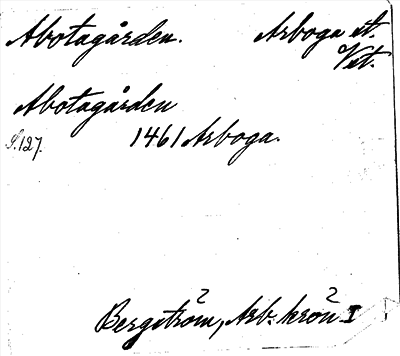 Abotagården. Arboga st.
Vst.
Abotagården
S.127. 1461 Arboga.
Bergström, Arb. krön I